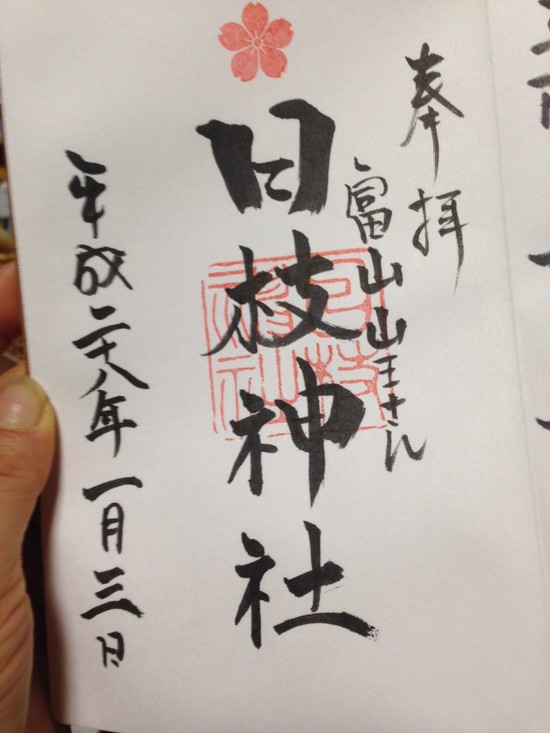 奉拝
富山山王さん
日枝神社
平成二十八年一月三日